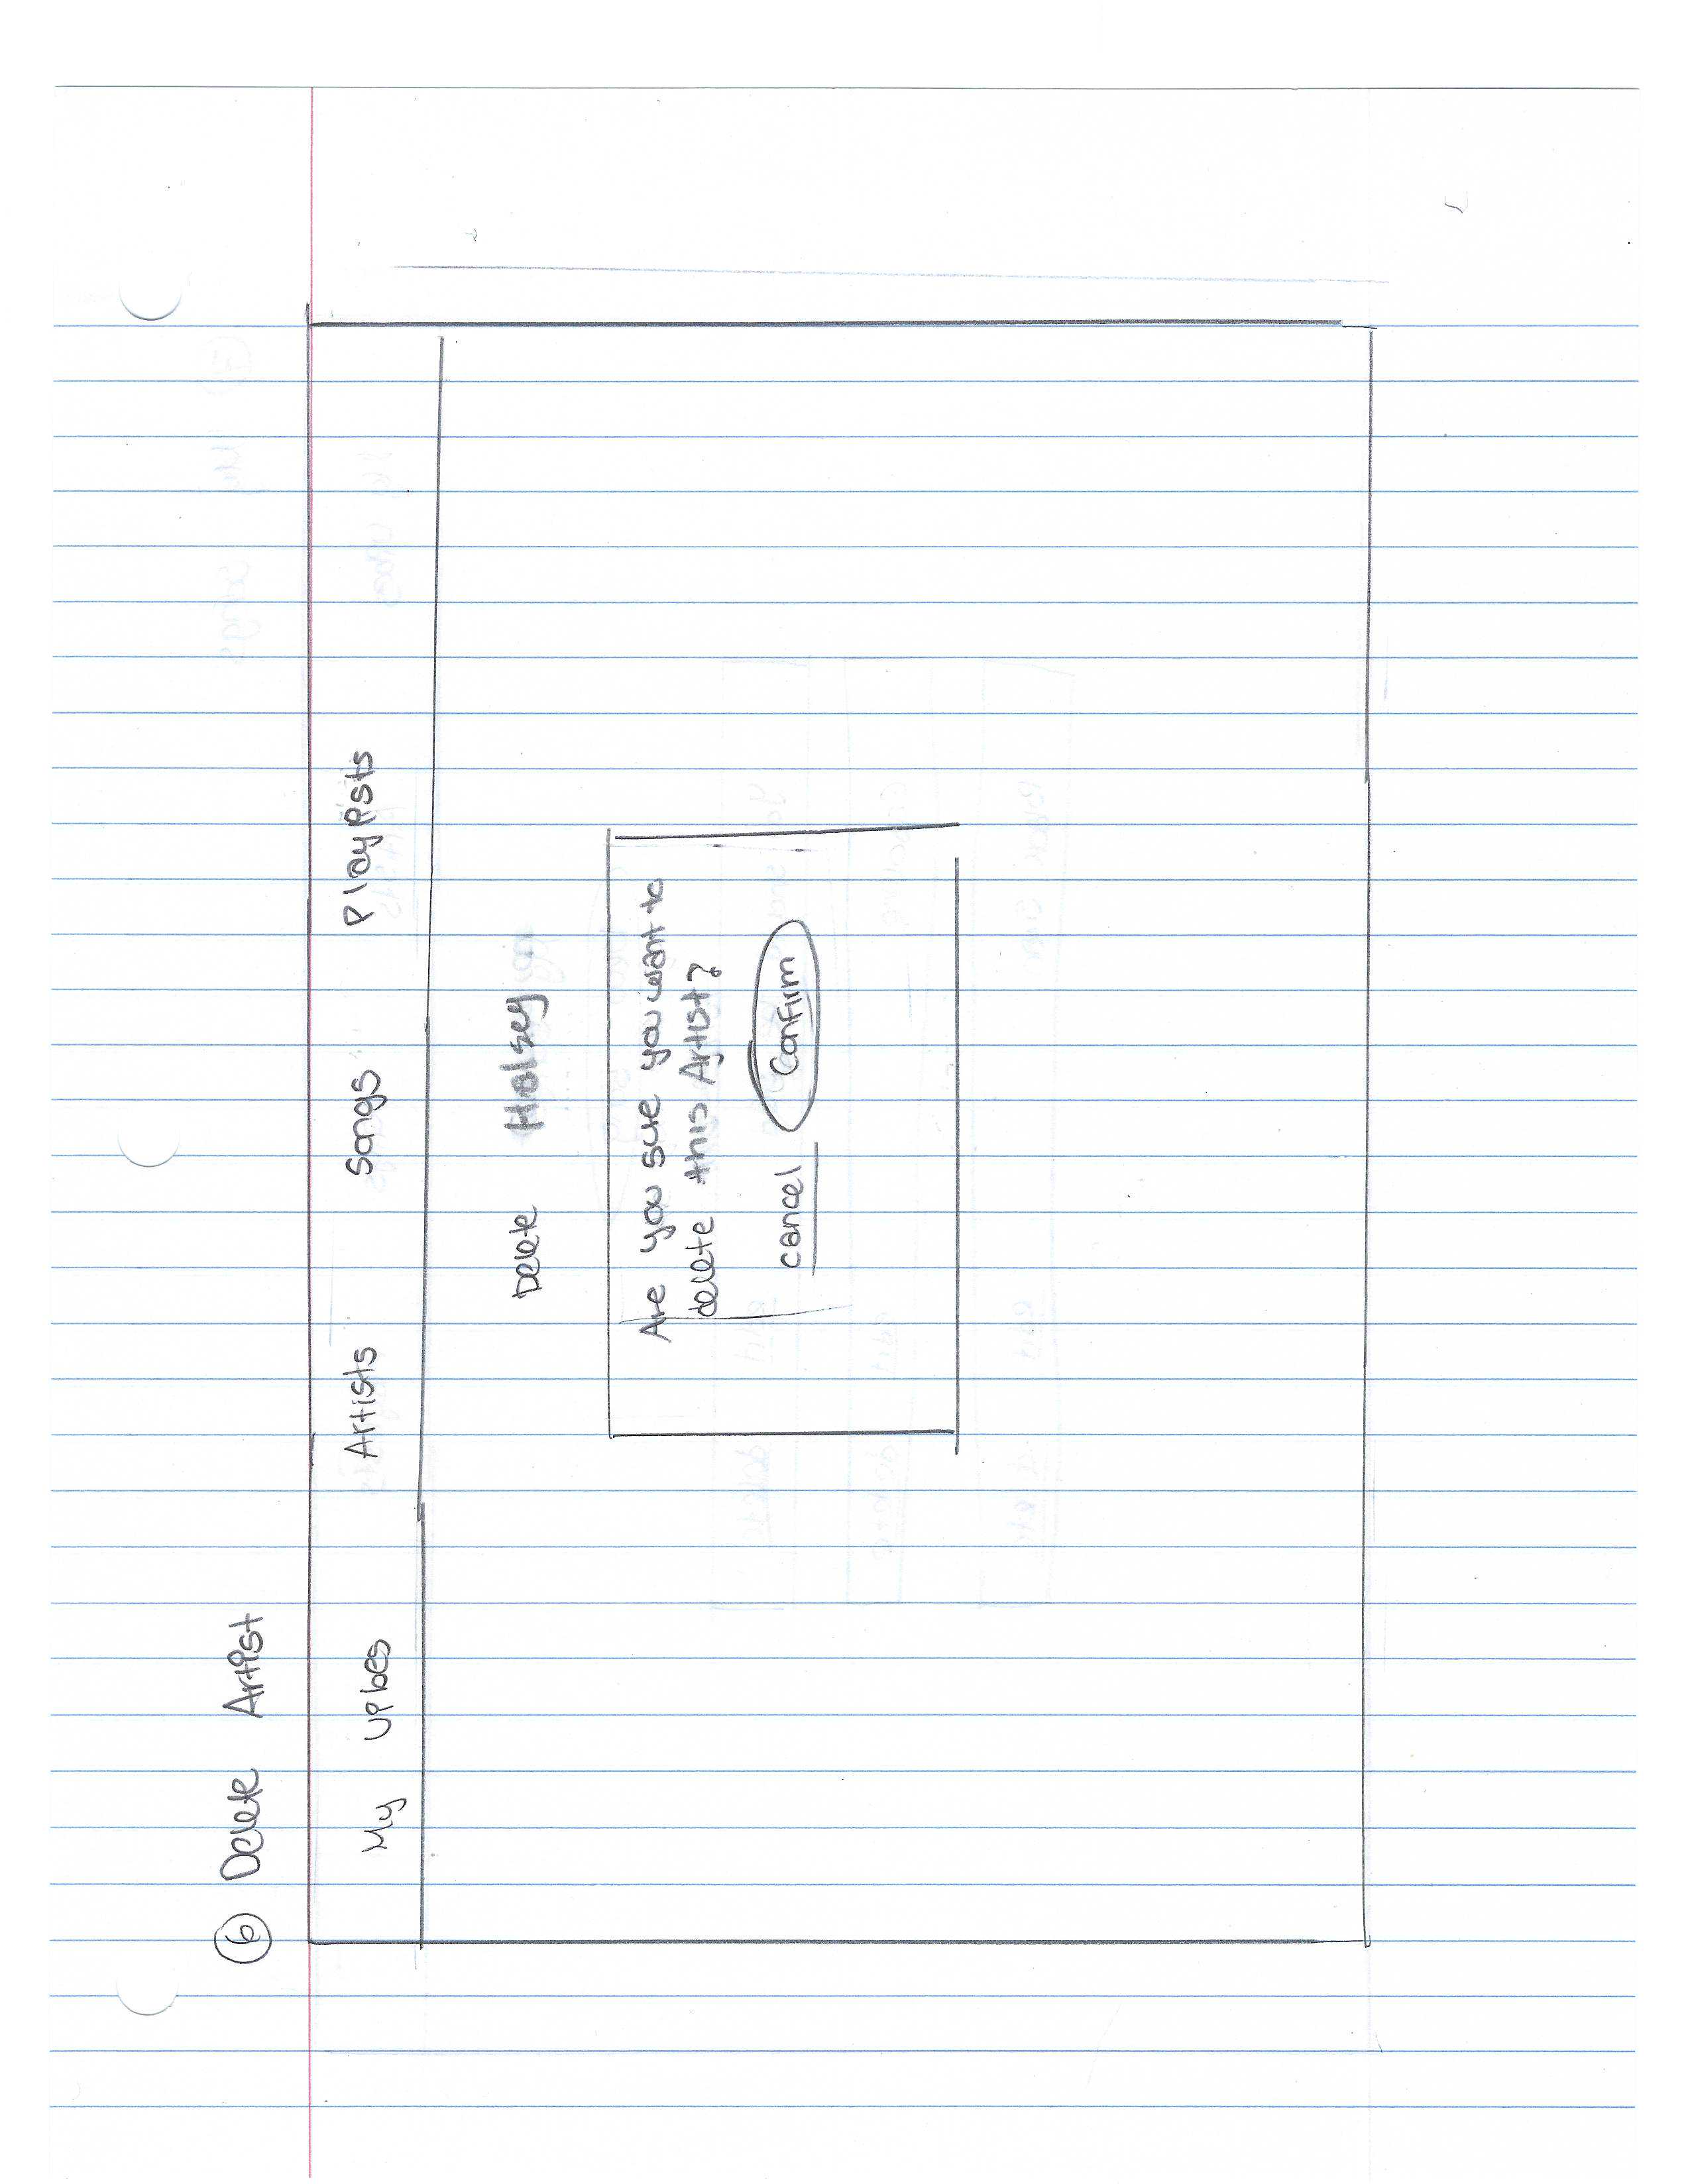 6 Delete Artist
My Vibes Artists Songs Playlists
Delete Halsey
Are you sure you want to
delete this Artist?
cancel Confirm